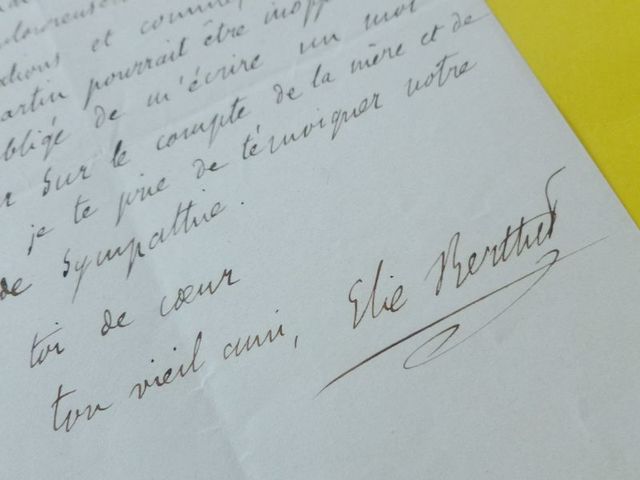 et comm
artin pourrait être inopp
obligé de m'écrire un mot
r sur le compte de la mère et de
je te prie de témoigner votre
de sympathie.
toi de cœur
ton vieil ami, Elie Berthet